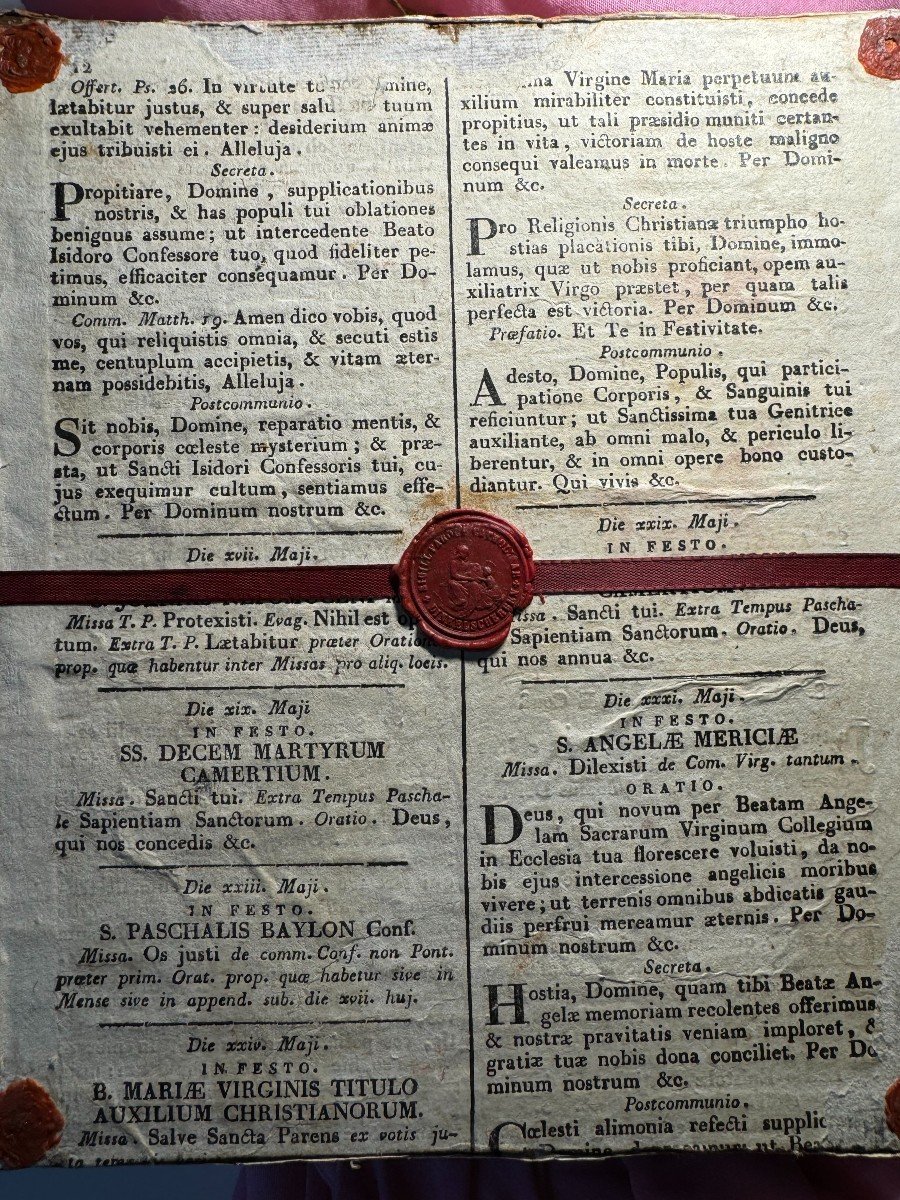 12
Offert. Ps. 26. In virtute mine,
lætabitur justus, & super salu tuum
exultabit vehementer: desiderium animæ
ejus tribuisti ei. Alleluja.
Secreta.
Propitiare, Domine, supplicationibus
nostris, & has populi tui oblationes
benignus assume; ut intercedente Beato
Isidoro Confessore tuo, quod fideliter pe-
timus, efficaciter consequamur. Per Do-
minum &c.
Comm. Matth. 19. Amen dico vobis, quod
vos, qui reliquistis omnia, & secuti estis
me, centuplum accipietis, & vitam æter-
nam possidebitis, Alleluja.
Postcommunio.
Sit nobis, Domine, reparatio mentis, &
corporis cœleste mysterium; & præ-
sta, ut Sancti Isidori Confessoris tui, cu-
jus exequimur cultum, sentiamus effe-
ctum. Per Dominum nostrum &c.
Die xvii. Maji.
Missa T. P. Protexisti. Evag. Nihil est
tum. Extra T. P. Lætabitur præter
prop. quæ habentur inter Missas pro aliq. locis.
Die xix. Maji
IN FESTO.
SS. DECEM MARTYRUM
CAMERTIUM.
Missa. Sancti tui. Extra Tempus Pascha-
le Sapientiam Sanctorum. Oratio. Deus,
qui nos concedis &c.
Die xxiii. Maji.
IN FESTO.
S. PASCHALIS BAYLON Conf.
Missa. Os justi de comm. Conf. non Pont.
præter prim. Orat. prop. quæ habetur sive in
Mense sive in append. sub. die xvii. huj.
Die xxiv. Maji.
IN FESTO.
B. MARIÆ VIRGINIS TITULO
AUXILIUM CHRISTIANORUM.
Missa. Salve Sancta Parens ex votis ju-
na Virgine Maria perpetuum au-
xilium mirabiliter constituisti, concede
propitius, ut tali præsidio muniti certan-
tes in vita, victoriam de hoste maligno
consequi valeamus in morte. Per Domi-
num &c.
Secreta.
Pro Religionis Christianæ triumpho ho-
stias placationis tibi, Domine, immo-
lamus, quæ ut nobis proficiant, opem au-
xiliatrix Virgo præstet, per quam talis
perfecta est victoria. Per Dominum &c.
Præfatio. Et Te in Festivitate.
Postcommunio.
Adesto, Domine, Populis, qui partici-
patione Corporis, & Sanguinis tui
reficiuntur; ut Sanctissima tua Genitrice
auxiliante, ab omni malo, & periculo li-
berentur, & in omni opere bono custo-
diantur. Qui vivis &c.
Die xxix. Maji.
IN FESTO.
Sancti tui. Extra Tempus Pascha-
Sapientiam Sanctorum. Oratio. Deus,
qui nos annua &c.
Die xxxi. Maji.
IN FESTO.
S. ANGELÆ MERICIÆ
Missa. Dilexisti de Com. Virg. tantum.
ORATIO.
Deus, qui novum per Beatam Ange-
lam Sacrarum Virginum Collegium
in Ecclesia tua florescere voluisti, da no-
bis ejus intercessione angelicis moribus
vivere; ut terrenis omnibus abdicatis gau-
diis perfrui mereamur æternis. Per Do-
minum nostrum &c.
Secreta.
Hostia, Domine, quam tibi Beatæ An-
gelæ memoriam recolentes offerimus
& nostræ pravitatis veniam imploret, &
gratiæ tuæ nobis dona conciliet. Per Do
minum nostrum &c.
Postcommunio.
Cœlesti alimonia refecti supplic